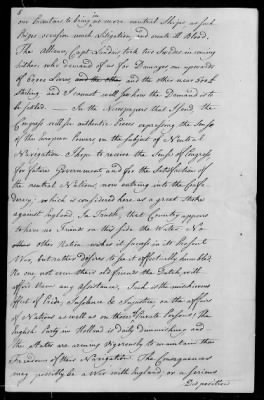 8
our Cruisers to bring in no more neutral Ships as such
Prizes occasion much Litigation and create ill Blood.
The Alliance, Capt Landais took two Swedes in coming
hither, who demand of us for Damages, one upwards
of £3000 and the other and the other near £500
sterling, and I cannot well see how the Demand is to
be settled. — In the Newspapers that I send, the
Congress will see authentic Pieces expressing the Sense
of the European Powers on the Subject of Neutral
Navigation. I hope to receive the Sense of Congress
for future Government and for the Satisfaction of
the neutral Nations, now entering into the Confe
deracy; which is considered here as a great stroke
against England. In Truth, that Country appears
to have no Friends on this side the Water. No
other Nation wishes it success in its Present
War, but rather desires to see it effectually humbled;
No one, not even their old friends the Dutch, will
afford them any Assistance. Such is the mischievous
Effect of Pride, Insolence & Injustice on the affairs
of Nations as well as on those of Private Persons; The
English Party in Holland is daily diminishing and
the States are arming vigorously to maintain the
Freedom of their Navigation. The Consequences
may possibly be a War with England, or a serious
Disposition